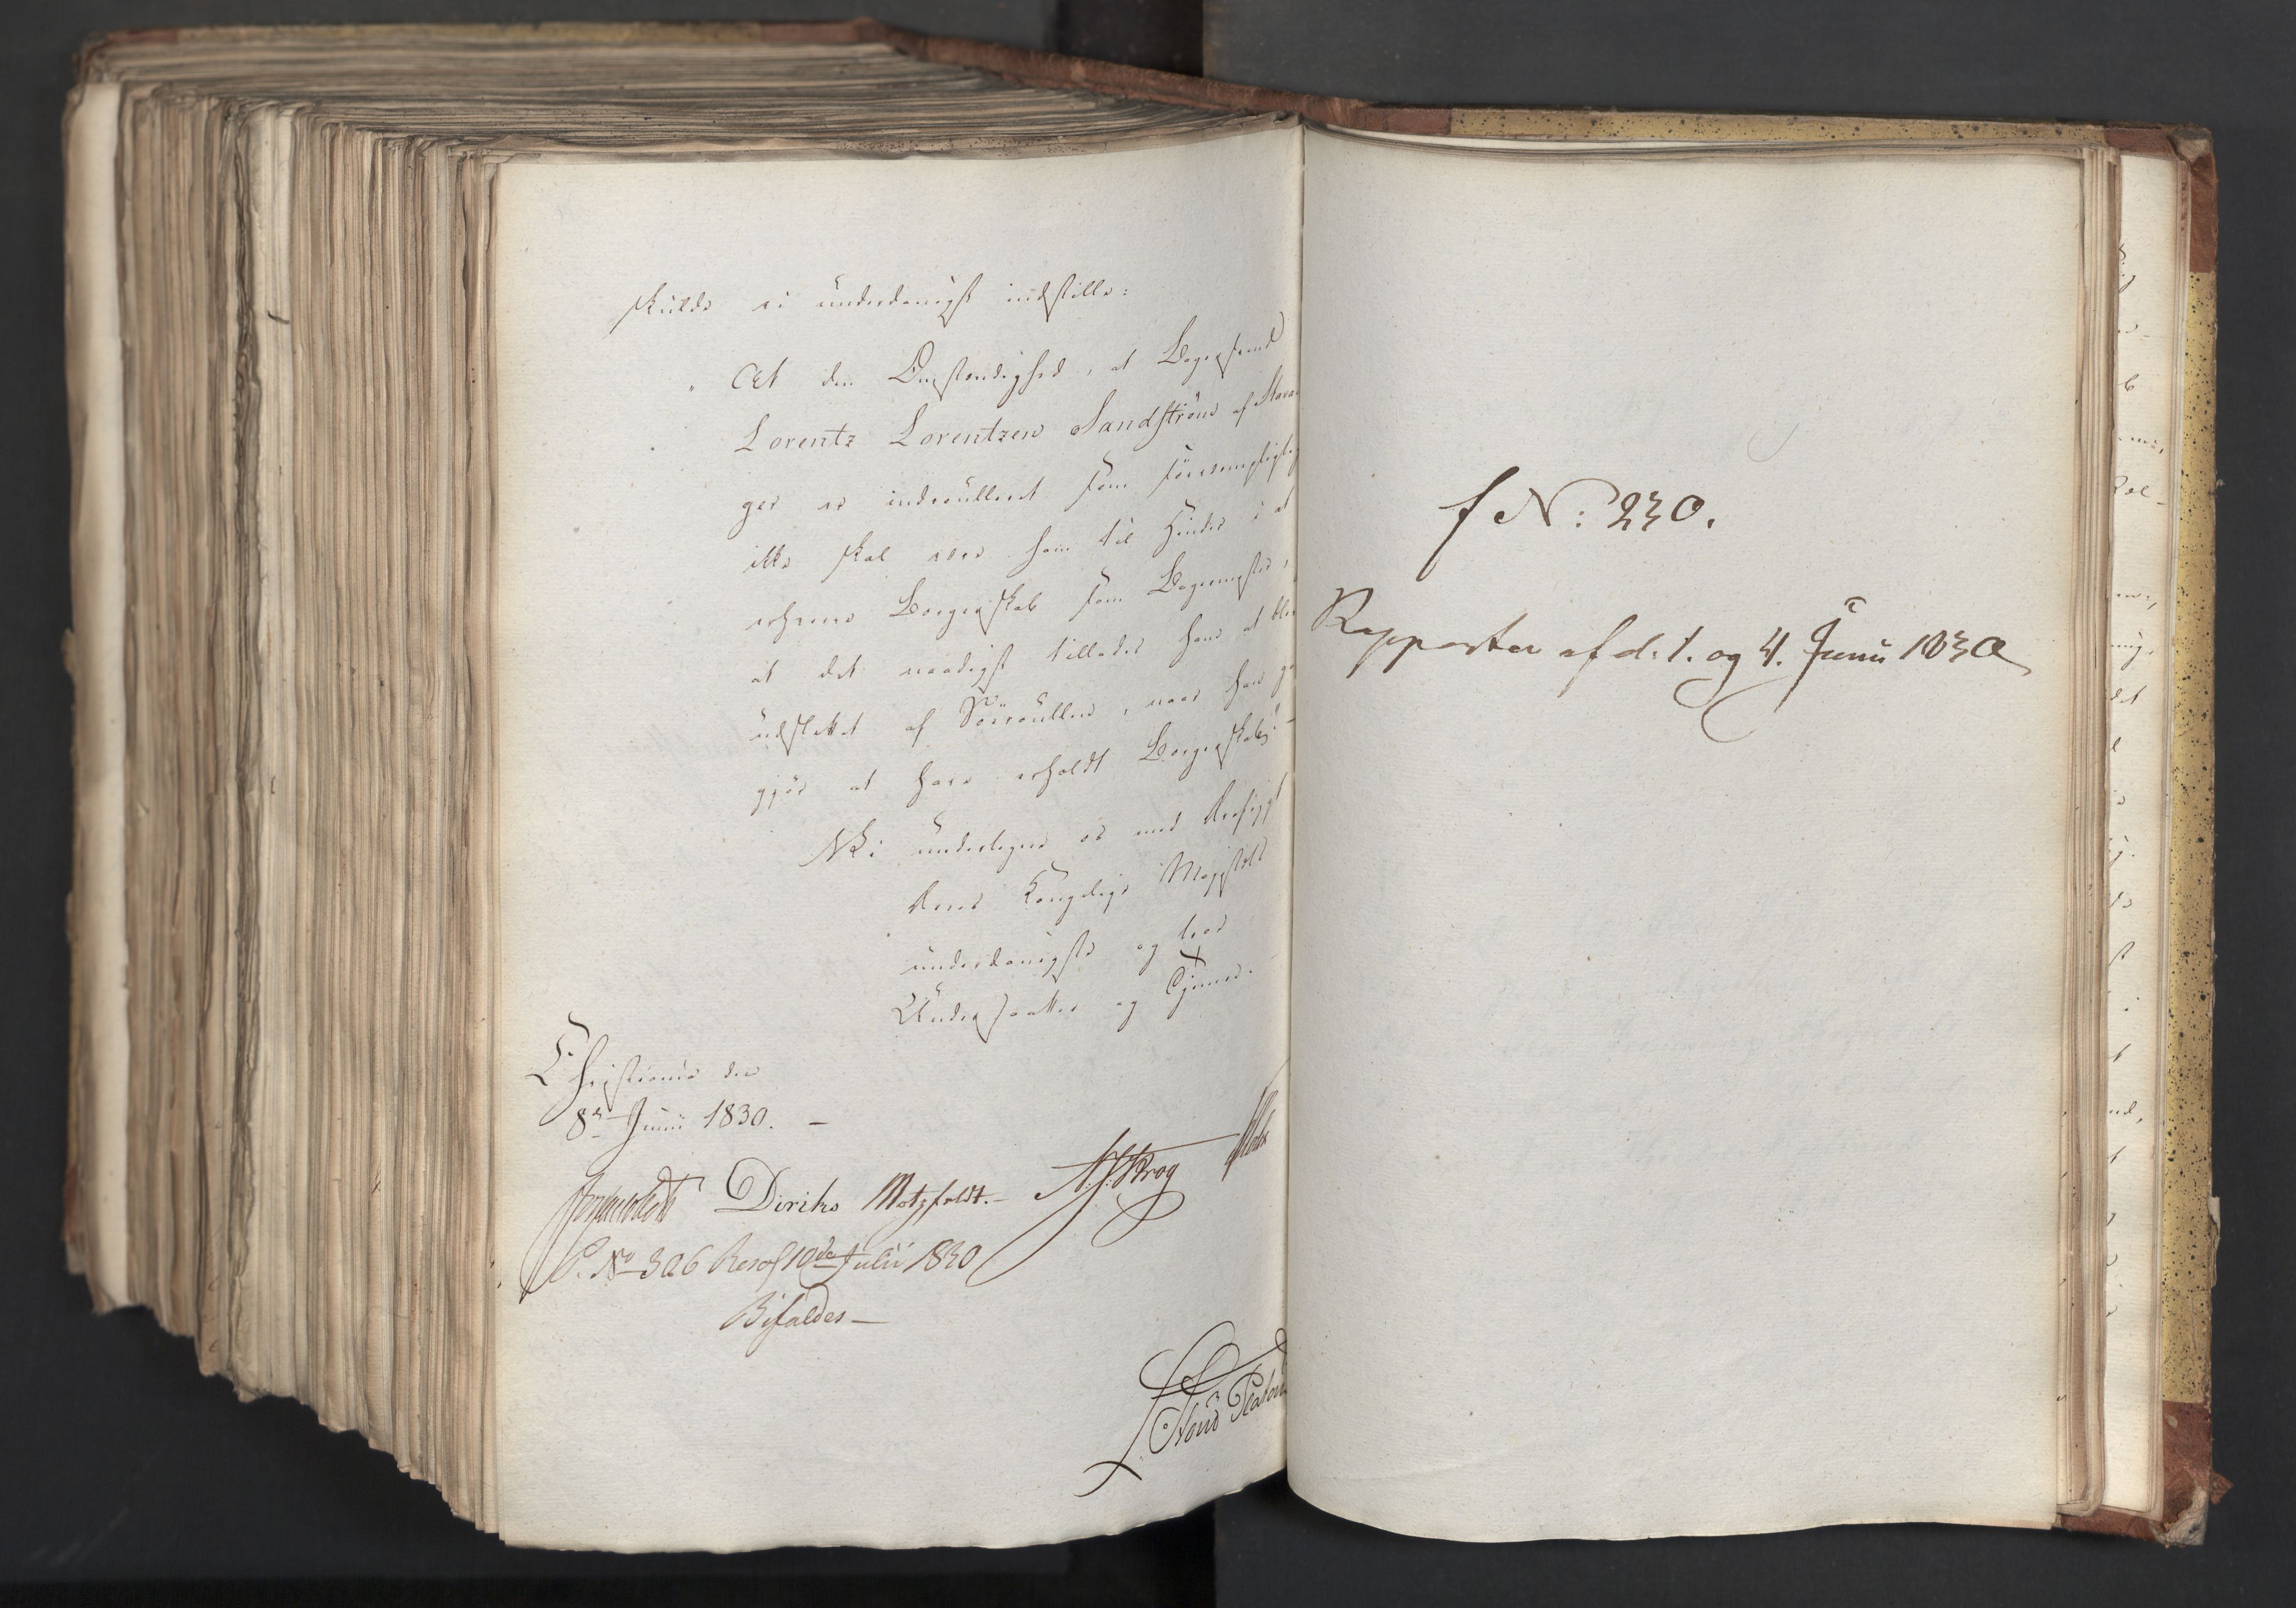 skulde vi underdanigst indstille:
"At den Omstændighed, at Bagersvend
Lorentz Lorentzen Sandström af Stavan-
ger er indroulleret som
ikke skal være ham til Hinder i at
erhverve Borgerskab som Bagermester,
at det naadigst tillades ham at blive
udslettet af Söeroullen, naar han
gjör at have erholdt Borgerskab."
Vi undertegne os med
Deres Kongelige Majestæts
underdanigste og troe
Undersaatter og Tjenere.
Christiania den
8de Junii 1830. -
Diriks Motzfeldt. - N.J. Krog
S. No 306 Resol 10de Julii 1830
Bifaldes -
f N: 230.
Rapporter af d: 1. og 4. Junii 1830